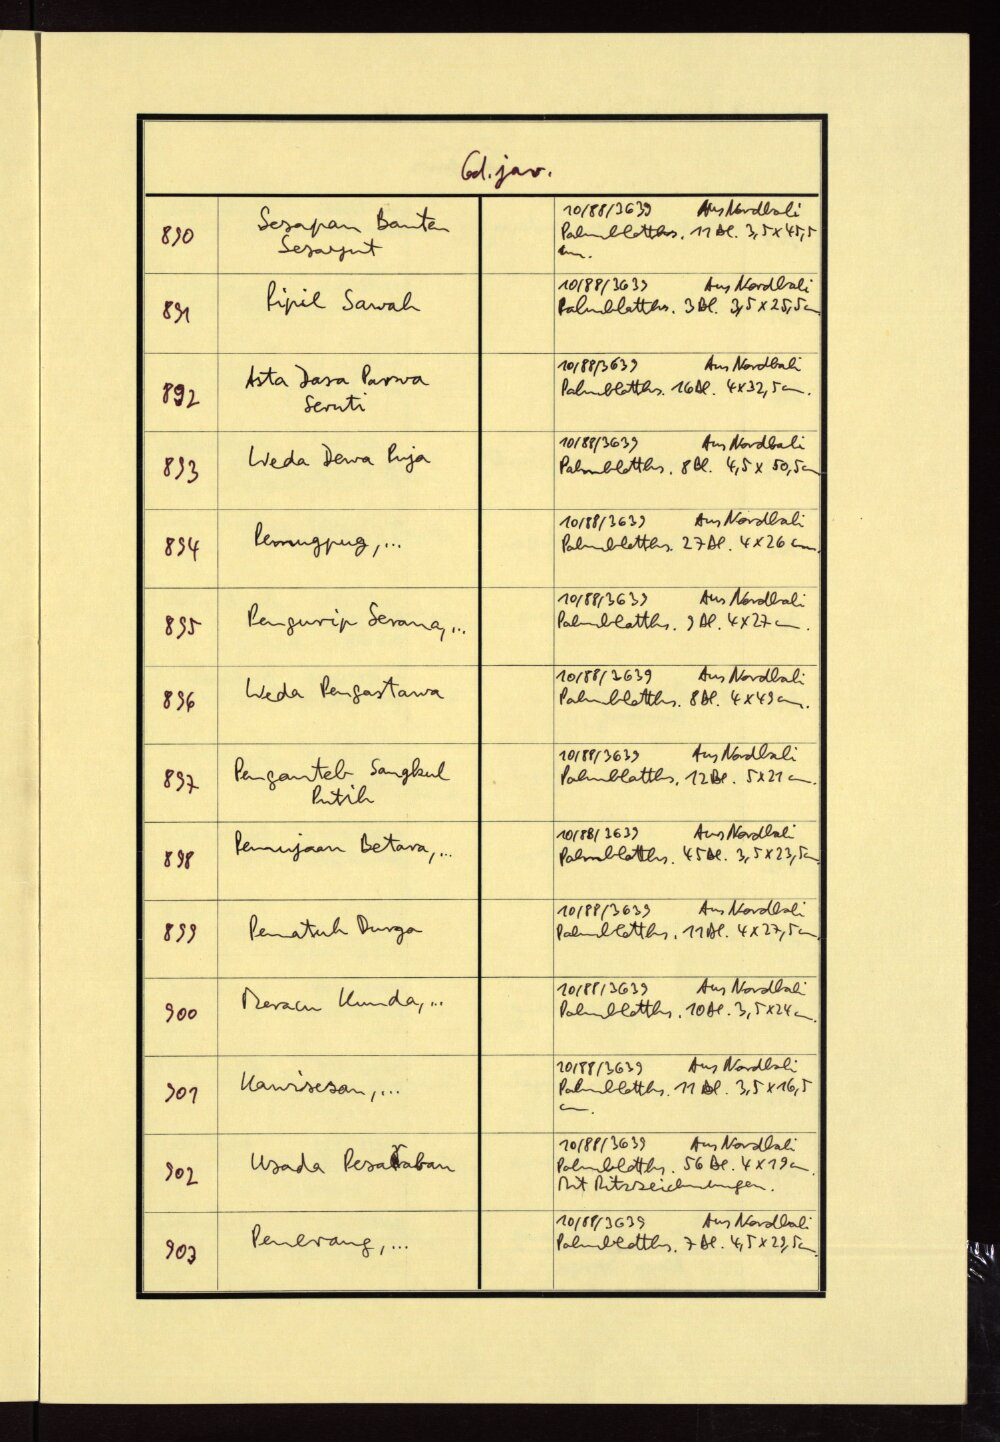 Cod. jav.
890 Sesapan Banten 10/88/3639 Aus Nordbali
Sesayut Palmblatths. 11 Bl. 3,5 x 45,5
cm.
891 Pipil Sawah 10/88/3639 Aus Nordbali
Palmblatths. 3 Bl. 3,5 x 25,5 cm
892 Asta Dasa Parwa 10/88/3639 Aus Nordbali
Seruti Palmblatths. 16 Bl. 4 x 32,5 cm.
893 Weda Dewa Puja 10/88/3639 Aus Nordbali
Palmblatths. 8 Bl. 4,5 x 50,5 cm
894 Pemugpug, ... 10/88/3639 Aus Nordbali
Palmblatths. 27 Bl. 4 x 26 cm.
895 Pengurip Serana, ... 10/88/3639 Aus Nordbali
Palmblatths. 9 Bl. 4 x 27 cm.
896 Weda Pengastawa 10/88/3639 Aus Nordbali
Palmblatths. 8 Bl. 4 x 49 cm.
897 Penganteb Sangkul 10/88/3639 Aus Nordbali
Putih Palmblatths. 12 Bl. 5 x 21 cm.
898 Pemujaan Betara, ... 10/88/3639 Aus Nordbali
Palmblatths. 45 Bl. 3,5 x 23,5 cm.
899 Pematuh Durga 10/88/3639 Aus Nordbali
Palmblatths. 11 Bl. 4 x 27,5 cm.
900 Meracu Kunda, ... 10/88/3639 Aus Nordbali
Palmblatths. 10 Bl. 3,5 x 24 cm.
901 Kawisesan, ... 10/88/3639 Aus Nordbali
Palmblatths. 11 Bl. 3,5 x 16,5
cm.
902 Usada 10/88/3639 Aus Nordbali
Palmblatths. 56 Bl. 4 x 19 cm.
Mit Ritzzeichnungen.
903 Penerang, ... 10/88/3639 Aus Nordbali
Palmblatths. 7 Bl. 4,5 x 29,5 cm.